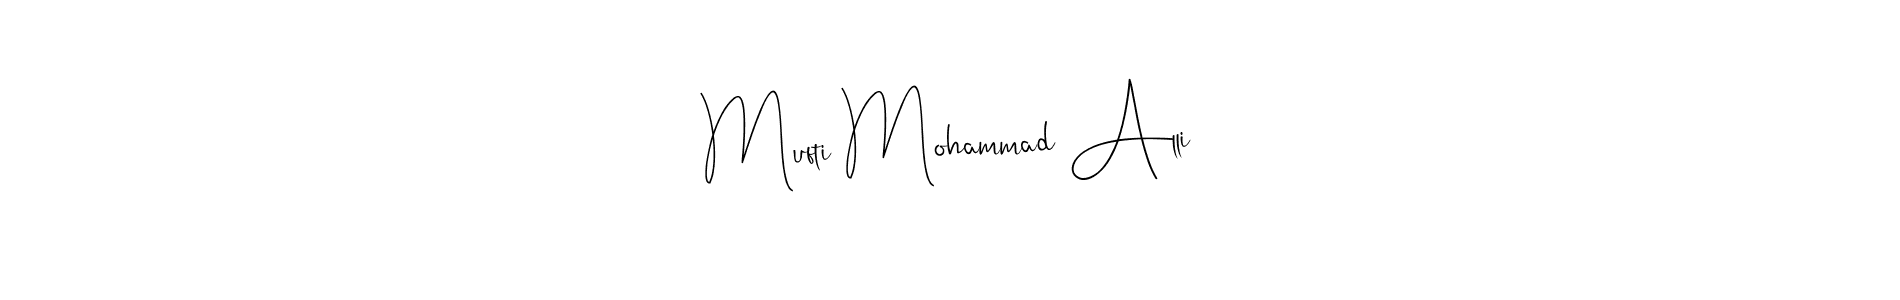 Mufti Mohammad Alli